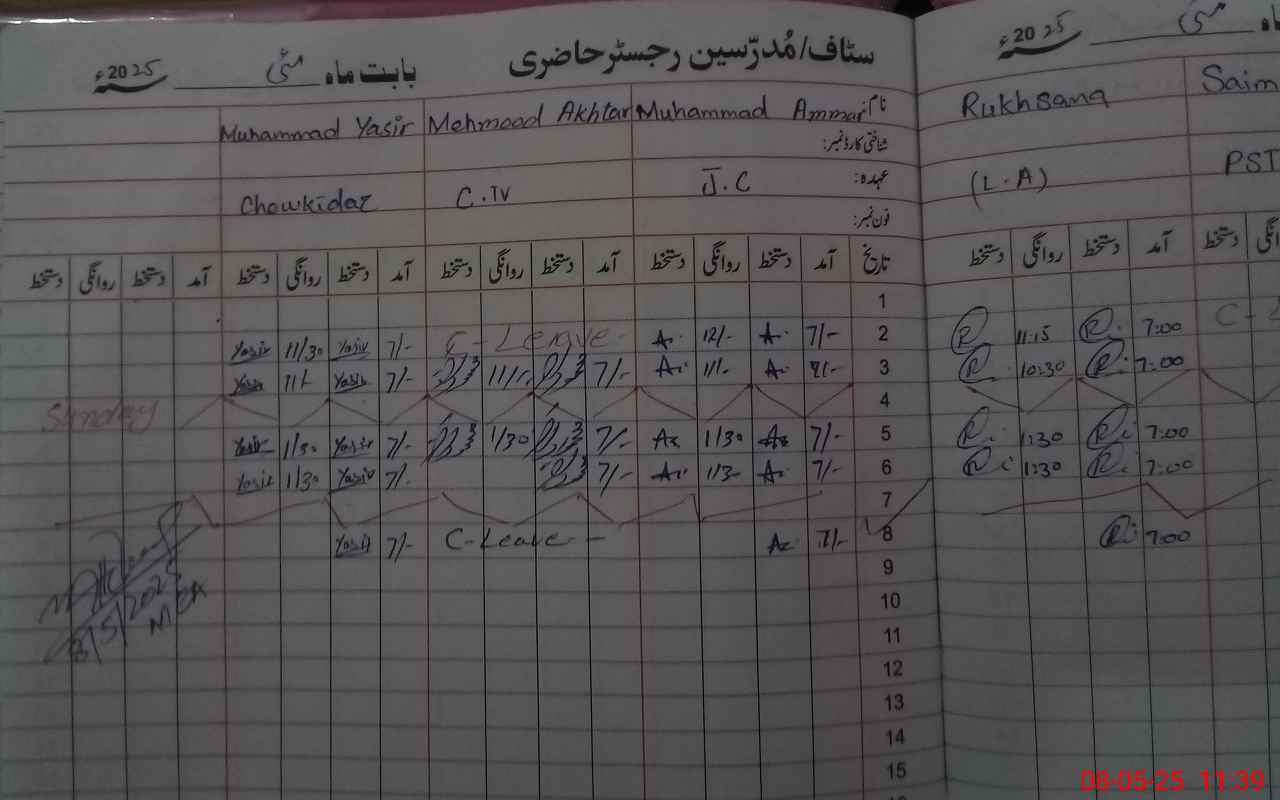 سٹاف/مُدرّسین رجسٹر حاضری بابت ماہ مئی 2025ء
نام Muhammad Ammar Mehmood Akhtar Muhammad Yasir
شناختی کارڈ نمبر:
عہدہ: J.C C.IV Chowkidar
فون نمبر:
تاریخ آمد دستخط روانگی دستخط آمد دستخط روانگی دستخط آمد دستخط روانگی دستخط آمد دستخط روانگی دستخط
1
2 7/- A. 12/- A. C-Leave- 7/- Yasir 11/30 Yasir
3 A. 11/- A. 7/- 11/- 7/- Yasir 11/- Yasir
4 Sunday
5 7/- 1/30 7/- 1/30 7/- Yasir 1/30 Yasir
6 7/- 7/- 7/- Yasir 1/30 Yasir
7
8 7/- C-Leave- 7/- Yasir
9
10
11
12
13
14
15
8/5/2025
MEA
ماہ مئی 2025ء
Rukhsana Saim
(L.A) PST
آمد دستخط روانگی دستخط دستخط
7:00 R. 11:15 R C-
7:00 R. 10:30 R.
7:00 R. 1:30 R.
7:00 R. 1:30 R.
7:00 R.
08-05-25 11:39